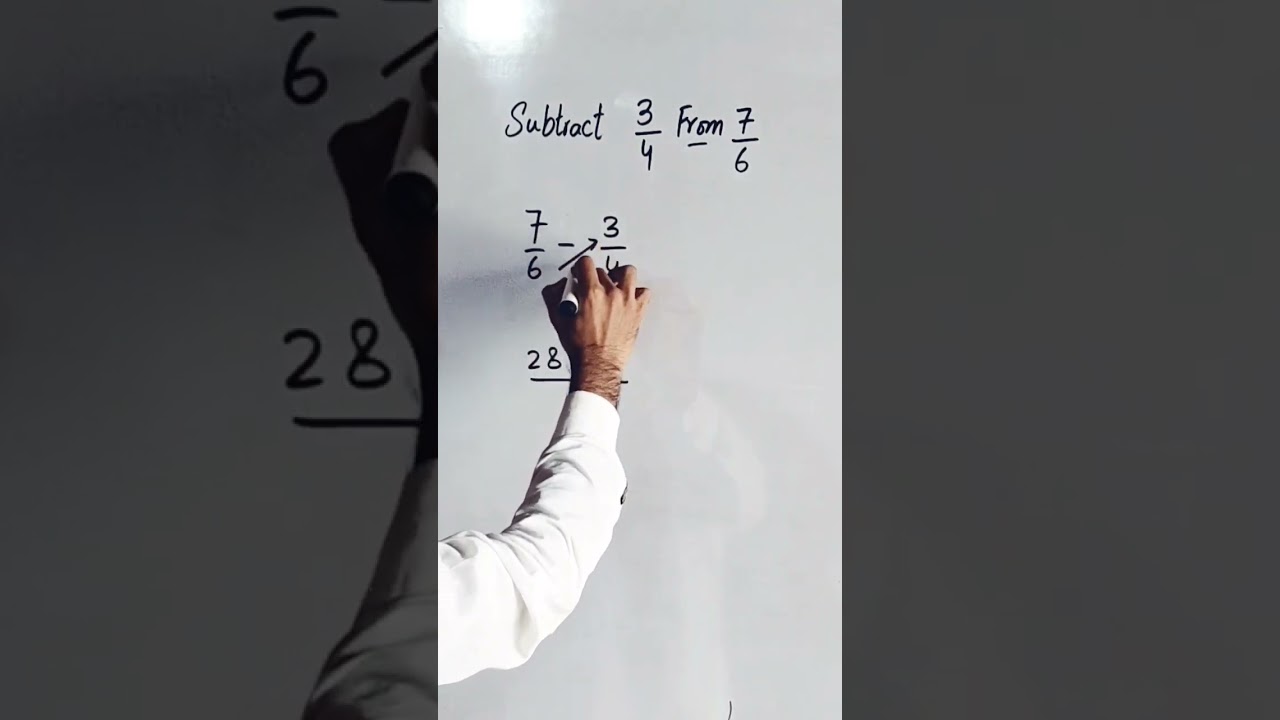 Subtract 3/4 From 7/6
7/6 - 3/4
28